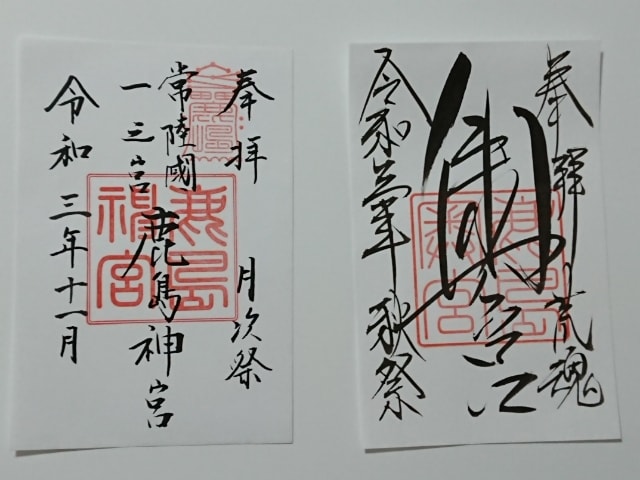 奉拝 月次祭
常陸國
一之宮 鹿島神宮
令和三年十一月
鹿島神宮
奉拝 荒魂
令和三年 秋祭